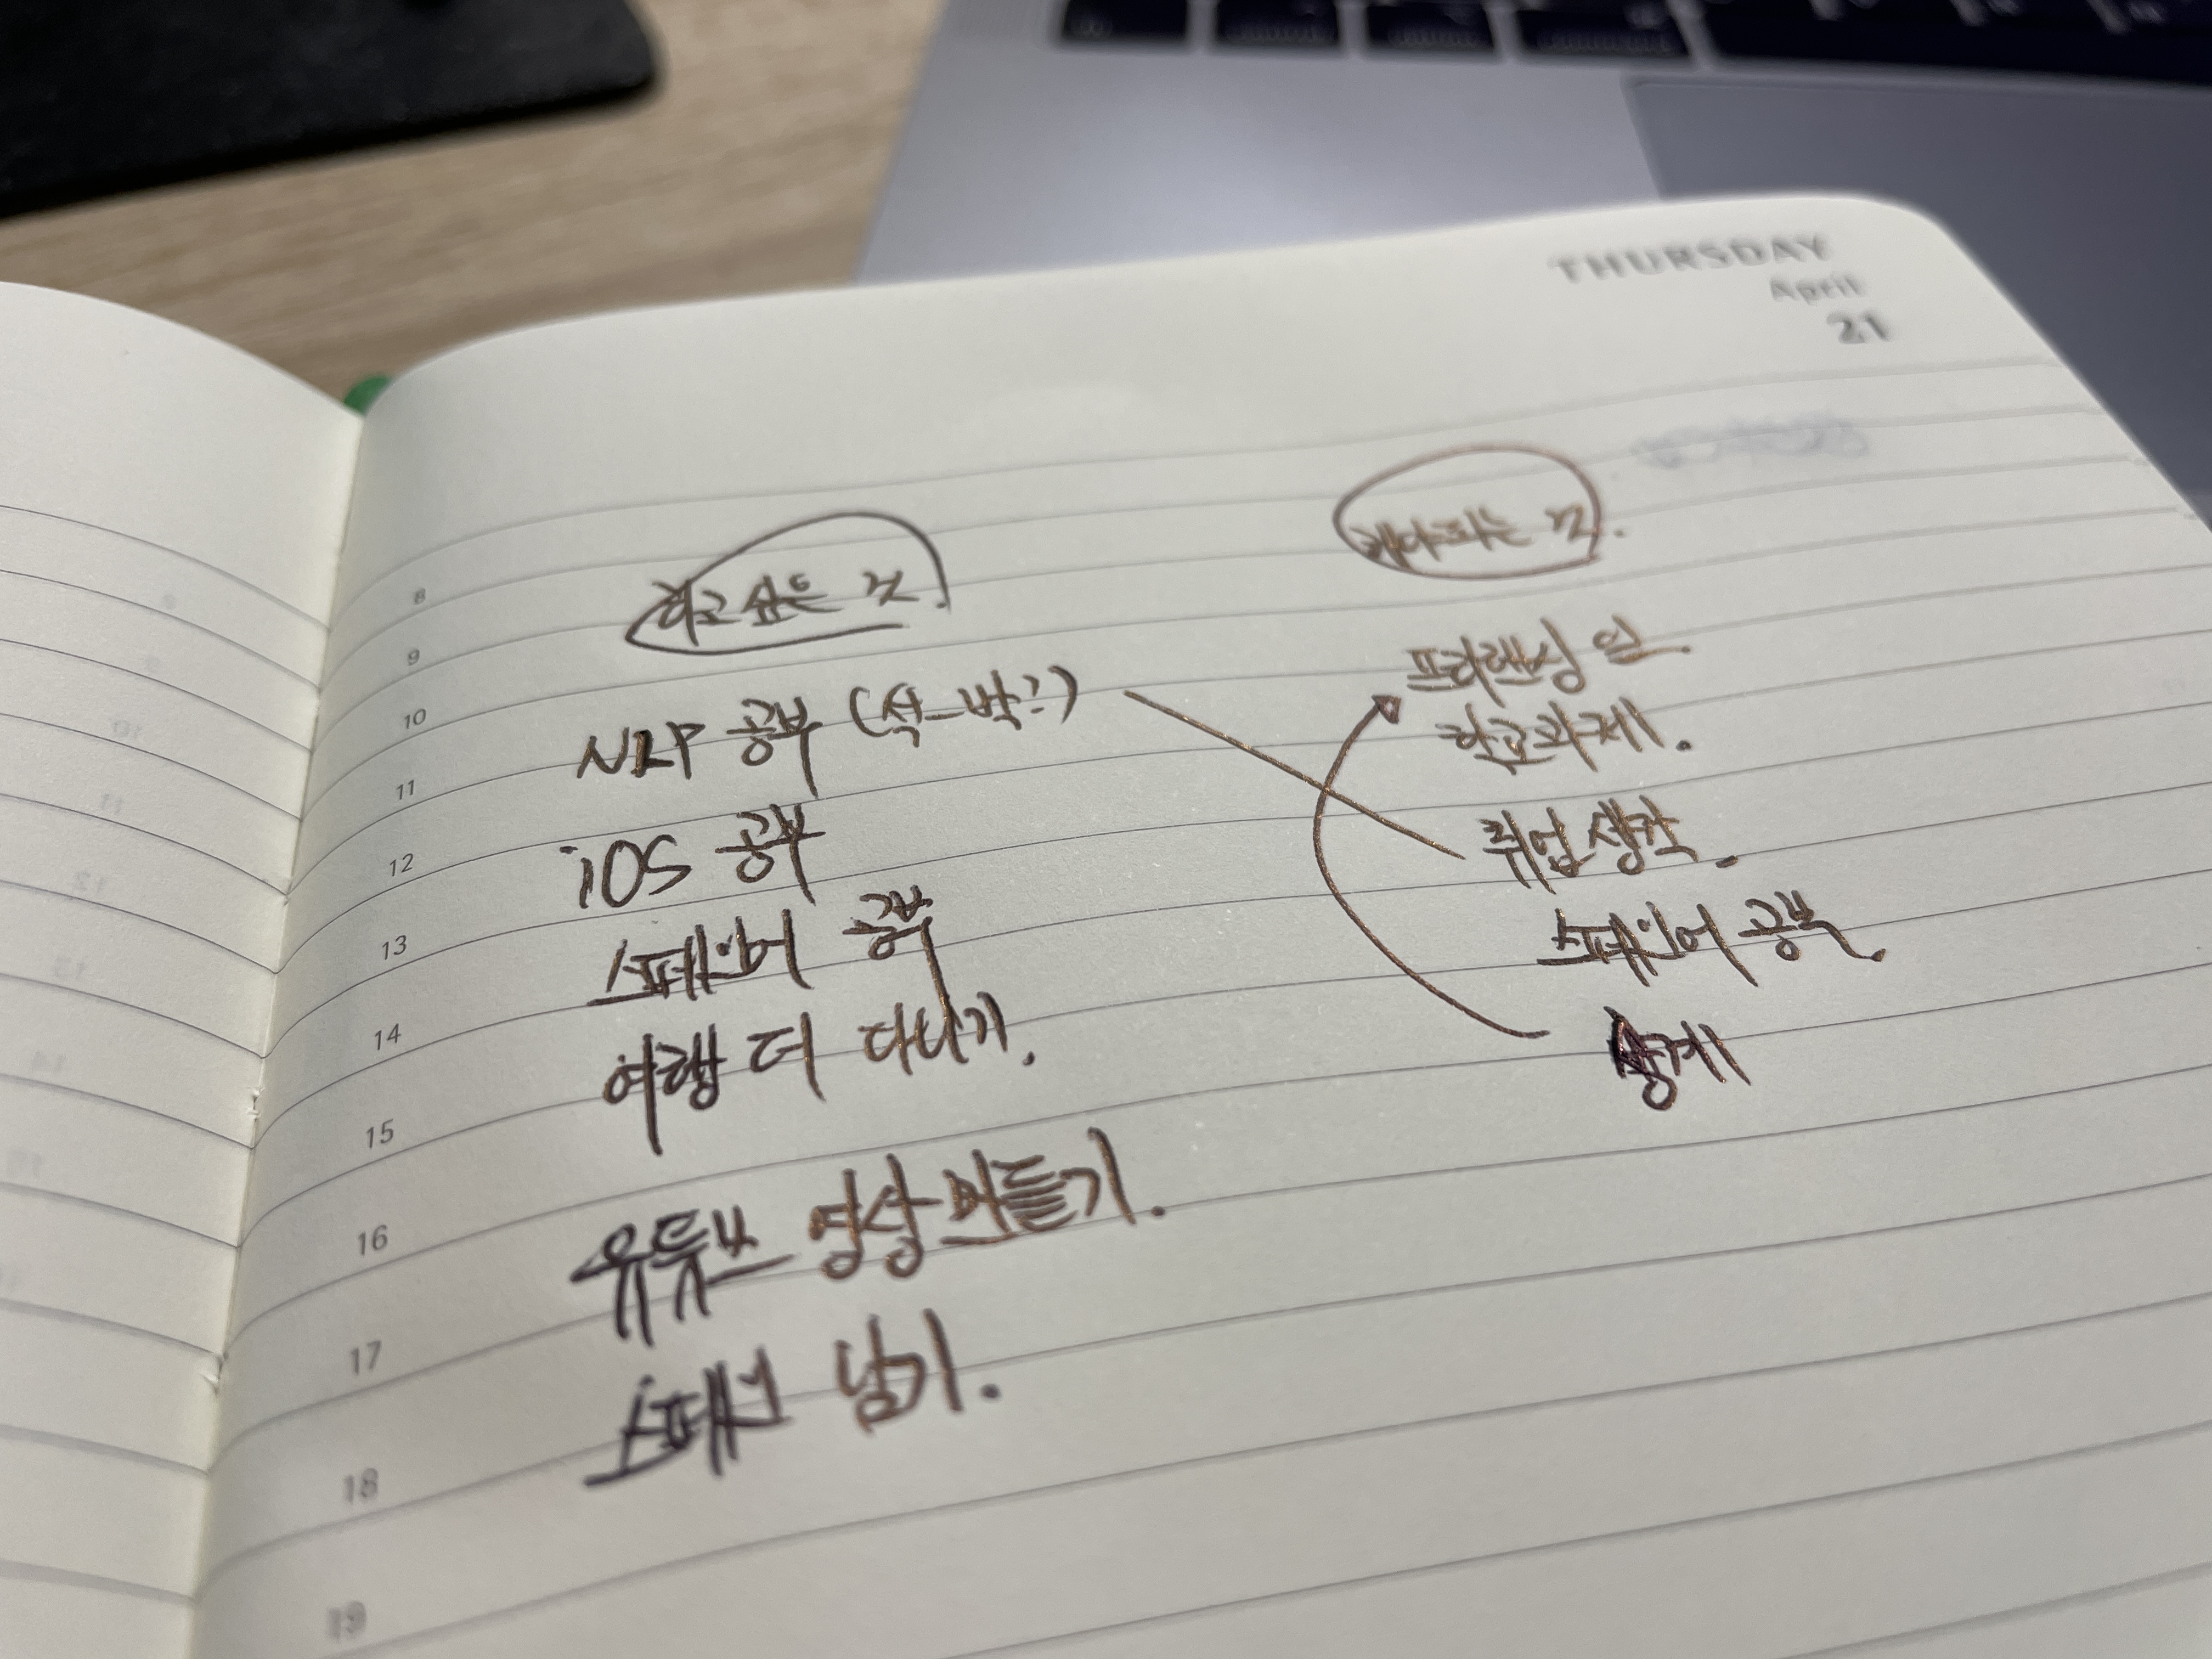 THURSDAY
April
21
하고 싶은 것.
NLP 공부 (석-박?)
iOS 공부
스페인어 공부
여행 더 다니기.
유튜브 영상 만들기.
스페인 넘기.
해야되는 것.
프리랜싱 일.
학교과제.
취업 생각.
스페인어 공부.
생계
8
9
10
11
12
13
14
15
16
17
18
19